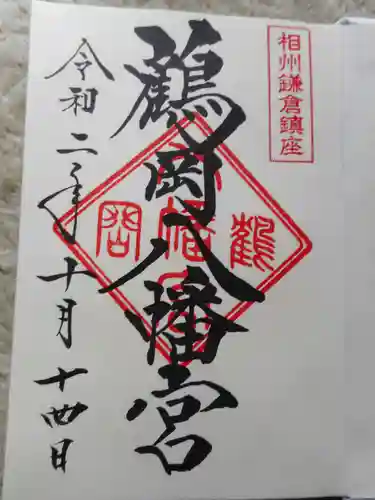 相州鎌倉鎮座
鶴岡八幡宮
令和二年十月十四日